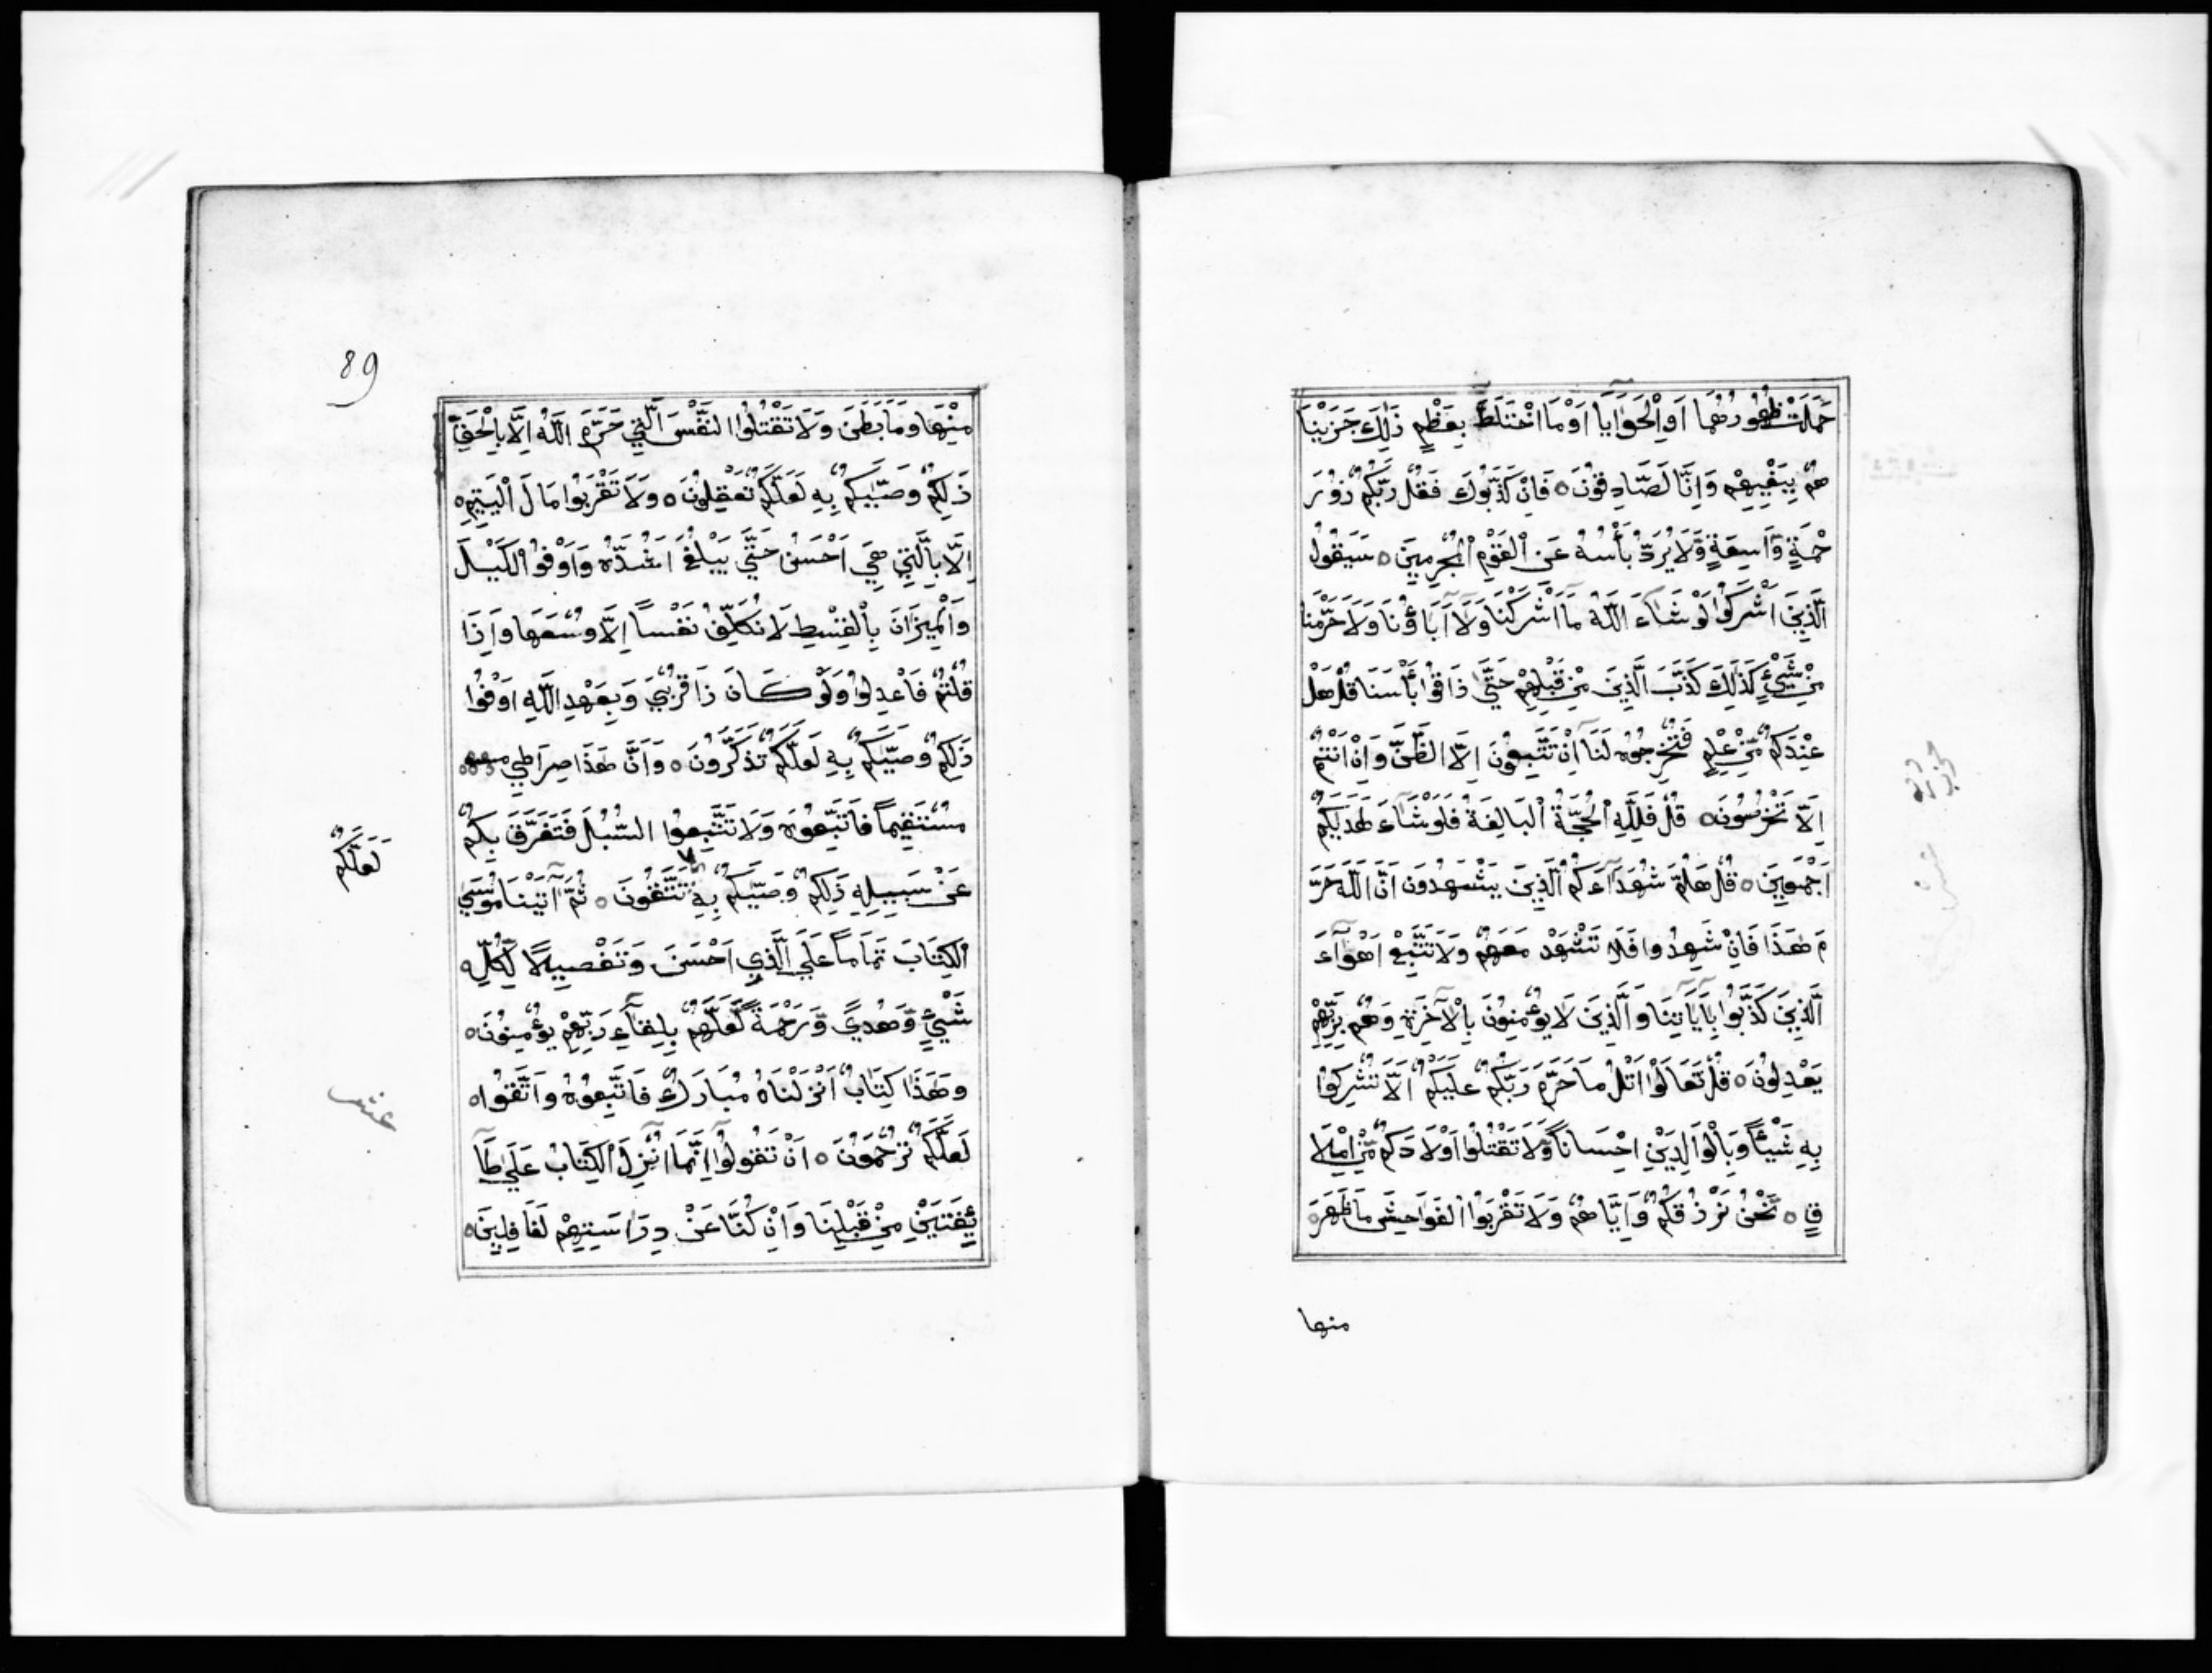 حَمَلَتْ ظُهُورُهُمَا اَوِ الْحَوَايَا اَوْ مَا اخْتَلَطَ بِعَظْمٍ ذَلِكَ جَزَيْنَا
هُمْ بِبَغْيِهِمْ وَاِنَّا لَصَادِقُونَ ه فَاِنْ كَذَّبُوكَ فَقُلْ رَبُّكُمْ ذُو رَ
حْمَةٍ وَّاسِعَةٍ وَّلَا يُرَدُّ بَأْسُهُ عَنِ الْقَوْمِ الْمُجْرِمِينَ ه سَيَقُولُ
الَّذِينَ اَشْرَكُوا لَوْ شَاءَ اللَّهُ مَا اَشْرَكْنَا وَلَا آبَاؤُنَا وَلَا حَرَّمْنَا
مِنْ شَيْءٍ كَذَلِكَ كَذَّبَ الَّذِينَ مِنْ قَبْلِهِمْ حَتَّى ذَاقُوا بَأْسَنَا قُلْ هَلْ
عِنْدَكُمْ مِّنْ عِلْمٍ فَتُخْرِجُوهُ لَنَا اِنْ تَتَّبِعُونَ اِلَّا الظَّنَّ وَاِنْ اَنْتُمْ
اِلَّا تَخْرُصُونَ ه قُلْ فَلِلَّهِ الْحُجَّةُ الْبَالِغَةُ فَلَوْ شَاءَ لَهَدَيكُمْ
اَجْمَعِينَ ه قُلْ هَلُمَّ شُهَدَاءَكُمُ الَّذِينَ يَشْهَدُونَ اَنَّ اللَّهَ حَرَّ
مَ هَذَا فَاِنْ شَهِدُوا فَلَا تَشْهَدْ مَعَهُمْ وَلَا تَتَّبِعْ اَهْوَاءَ
الَّذِينَ كَذَّبُوا بِآيَاتِنَا وَالَّذِينَ لَا يُؤْمِنُونَ بِالْآخِرَةِ وَهُمْ بِرَبِّهِمْ
يَعْدِلُونَ ه قُلْ تَعَالَوْا اَتْلُ مَا حَرَّمَ رَبُّكُمْ عَلَيْكُمْ اَلَّا تُشْرِكُوا
بِهِ شَيْئًا وَّبِالْوَالِدَيْنِ اِحْسَانًا وَّلَا تَقْتُلُوا اَوْلَادَكُمْ مِّنْ اِمْلَا
قٍ ه نَحْنُ نَرْزُقُكُمْ وَاِيَّاهُمْ وَلَا تَقْرَبُوا الْفَوَاحِشَ مَا ظَهَرَ
منها
89
مِنْهَا وَمَا بَطَنَ وَلَا تَقْتُلُوا النَّفْسَ الَّتِي حَرَّمَ اللَّهُ اِلَّا بِالْحَقِّ
ذَلِكُمْ وَصَّيكُمْ بِهِ لَعَلَّكُمْ تَعْقِلُونَ ه وَلَا تَقْرَبُوا مَالَ الْيَتِيمِ
اِلَّا بِالَّتِي هِيَ اَحْسَنُ حَتَّي يَبْلُغَ اَشُدَّهُ وَاَوْفُوا الْكَيْلَ
وَالْمِيزَانَ بِالْقِسْطِ لَا نُكَلِّفُ نَفْسًا اِلَّا وُسْعَهَا وَاِذَا
قُلْتُمْ فَاعْدِلُوا وَلَوْ كَانَ ذَا قُرْبَي وَبِعَهْدِ اللَّهِ اَوْفُوا
ذَلِكُمْ وَصَّيكُمْ بِهِ لَعَلَّكُمْ تَذَكَّرُونَ ه وَاَنَّ هَذَا صِرَاطِي
مُسْتَقِيمًا فَاتَّبِعُوهُ وَلَا تَتَّبِعُوا السُّبُلَ فَتَفَرَّقَ بِكُمْ
لَعَلَّكُمْ
عَنْ سَبِيلِهِ ذَلِكُمْ وَصَّيكُمْ بِهِ تَتَّقُونَ ه ثُمَّ آتَيْنَا مُوسَي
الْكِتَابَ تَمَامًا عَلَي الَّذِي اَحْسَنَ وَتَفْصِيلًا لِّكُلِّ
شَيْءٍ وَّهُدًي وَّرَحْمَةً لَّعَلَّهُمْ بِلِقَاءِ رَبِّهِمْ يُؤْمِنُونَ ه
وَهَذَا كِتَابٌ اَنْزَلْنَاهُ مُبَارَكٌ فَاتَّبِعُوهُ وَاتَّقُوا ه
لَعَلَّكُمْ تُرْحَمُونَ ه اَنْ تَقُولُوا اِنَّمَا اُنْزِلَ الْكِتَابُ عَلَي طَا
ئِفَتَيْنِ مِنْ قَبْلِنَا وَاِنْ كُنَّا عَنْ دِرَاسَتِهِمْ لَغَافِلِينَ ه